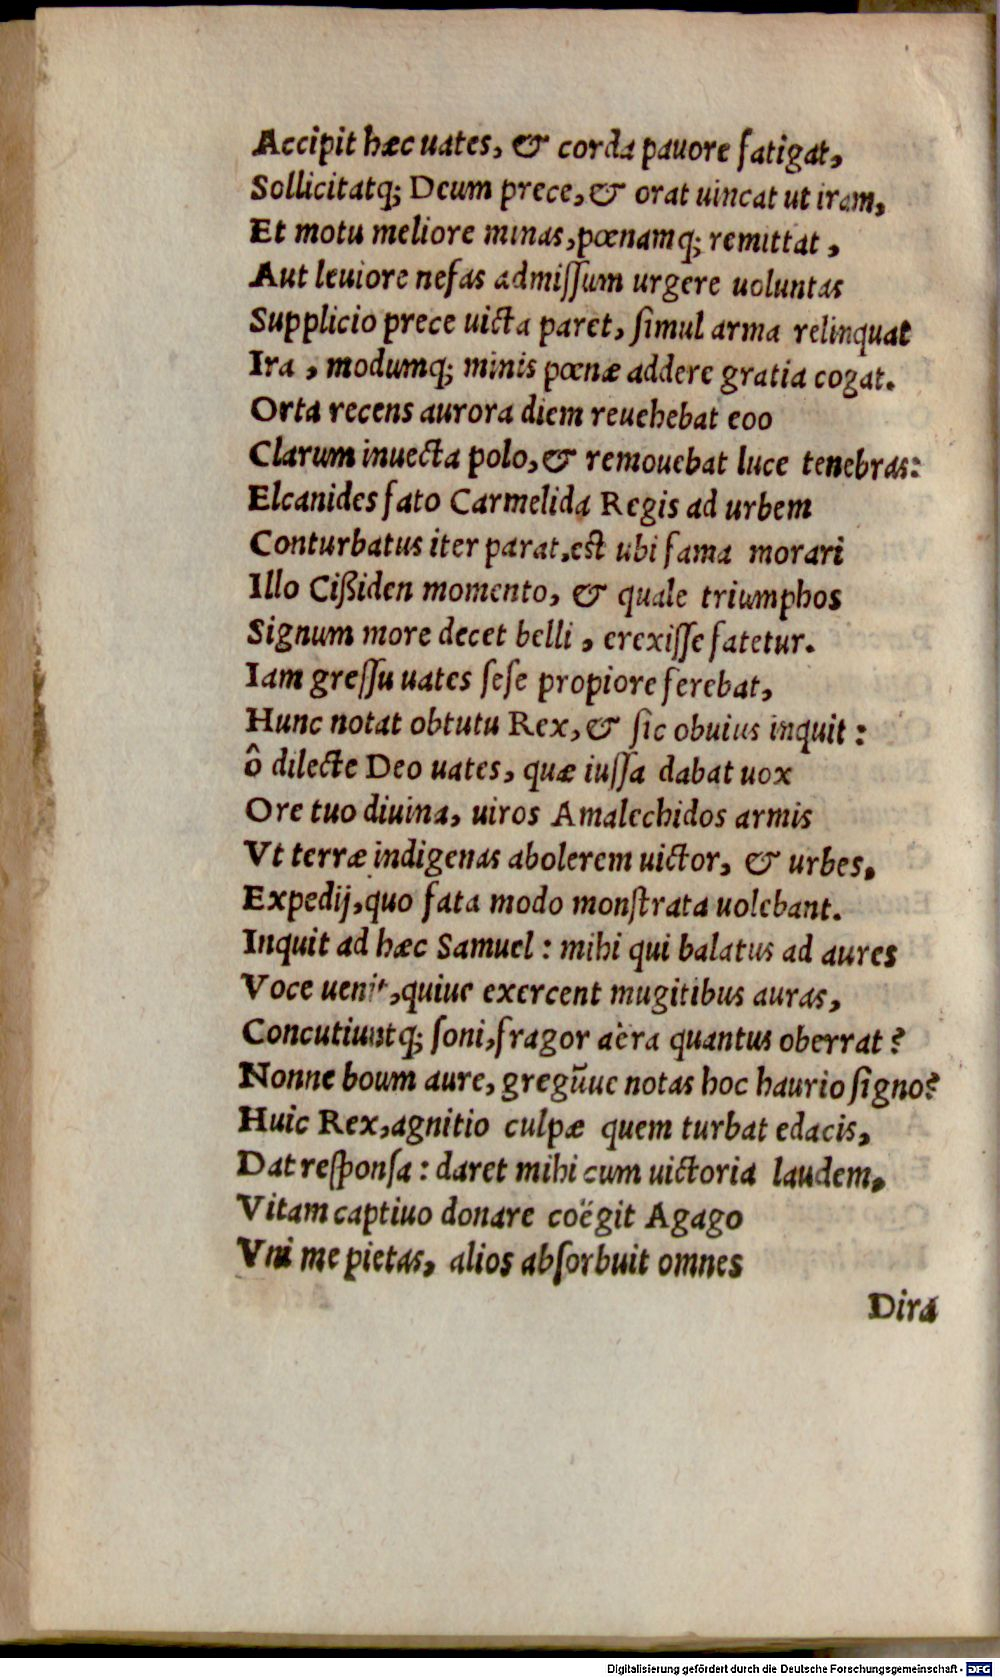 Accipit hæc uates, & corda pauore fatigat,
Sollicitatq; Deum prece, & orat uincat ut iram,
Et motu meliore minas, pœnamq; remittat,
Aut leuiore nefas admiſſum urgere uoluntas
Supplicio prece uicta paret, ſimul arma relinquat
Ira, modumq; minis pœnæ addere gratia cogat.
Orta recens aurora diem reuehebat eoo
Clarum inuecta polo, & remouebat luce tenebras:
Elcanides fato Carmelida Regis ad urbem
Conturbatus iter parat. est ubi fama morari
Illo Cißiden momento, & quale triumphos
Signum more decet belli, erexiſſe fatetur.
Iam greſſu uates ſeſe propiore ferebat,
Hunc notat obtutu Rex, & ſic obuius inquit:
ô dilecte Deo uates, quæ iuſſa dabat uox
Ore tuo diuina, uiros Amalechidos armis
Vt terræ indigenas abolerem uictor, & urbes,
Expedij, quo fata modo monſtrata uolebant.
Inquit ad hæc Samuel: mihi qui balatus ad aures
Voce uenit, quiue exercent mugitibus auras,
Concutiuntq; ſoni, fragor aëra quantus oberrat?
Nonne boum aure, gregũue notas hoc haurio ſigno?
Huic Rex, agnitio culpæ quem turbat edacis,
Dat reſponſa: daret mihi cum uictoria laudem,
Vitam captiuo donare coëgit Agago
Vni me pietas, alios abſorbuit omnes
Dira
Digitalisierung gefördert durch die Deutsche Forschungsgemeinschaft - DFG